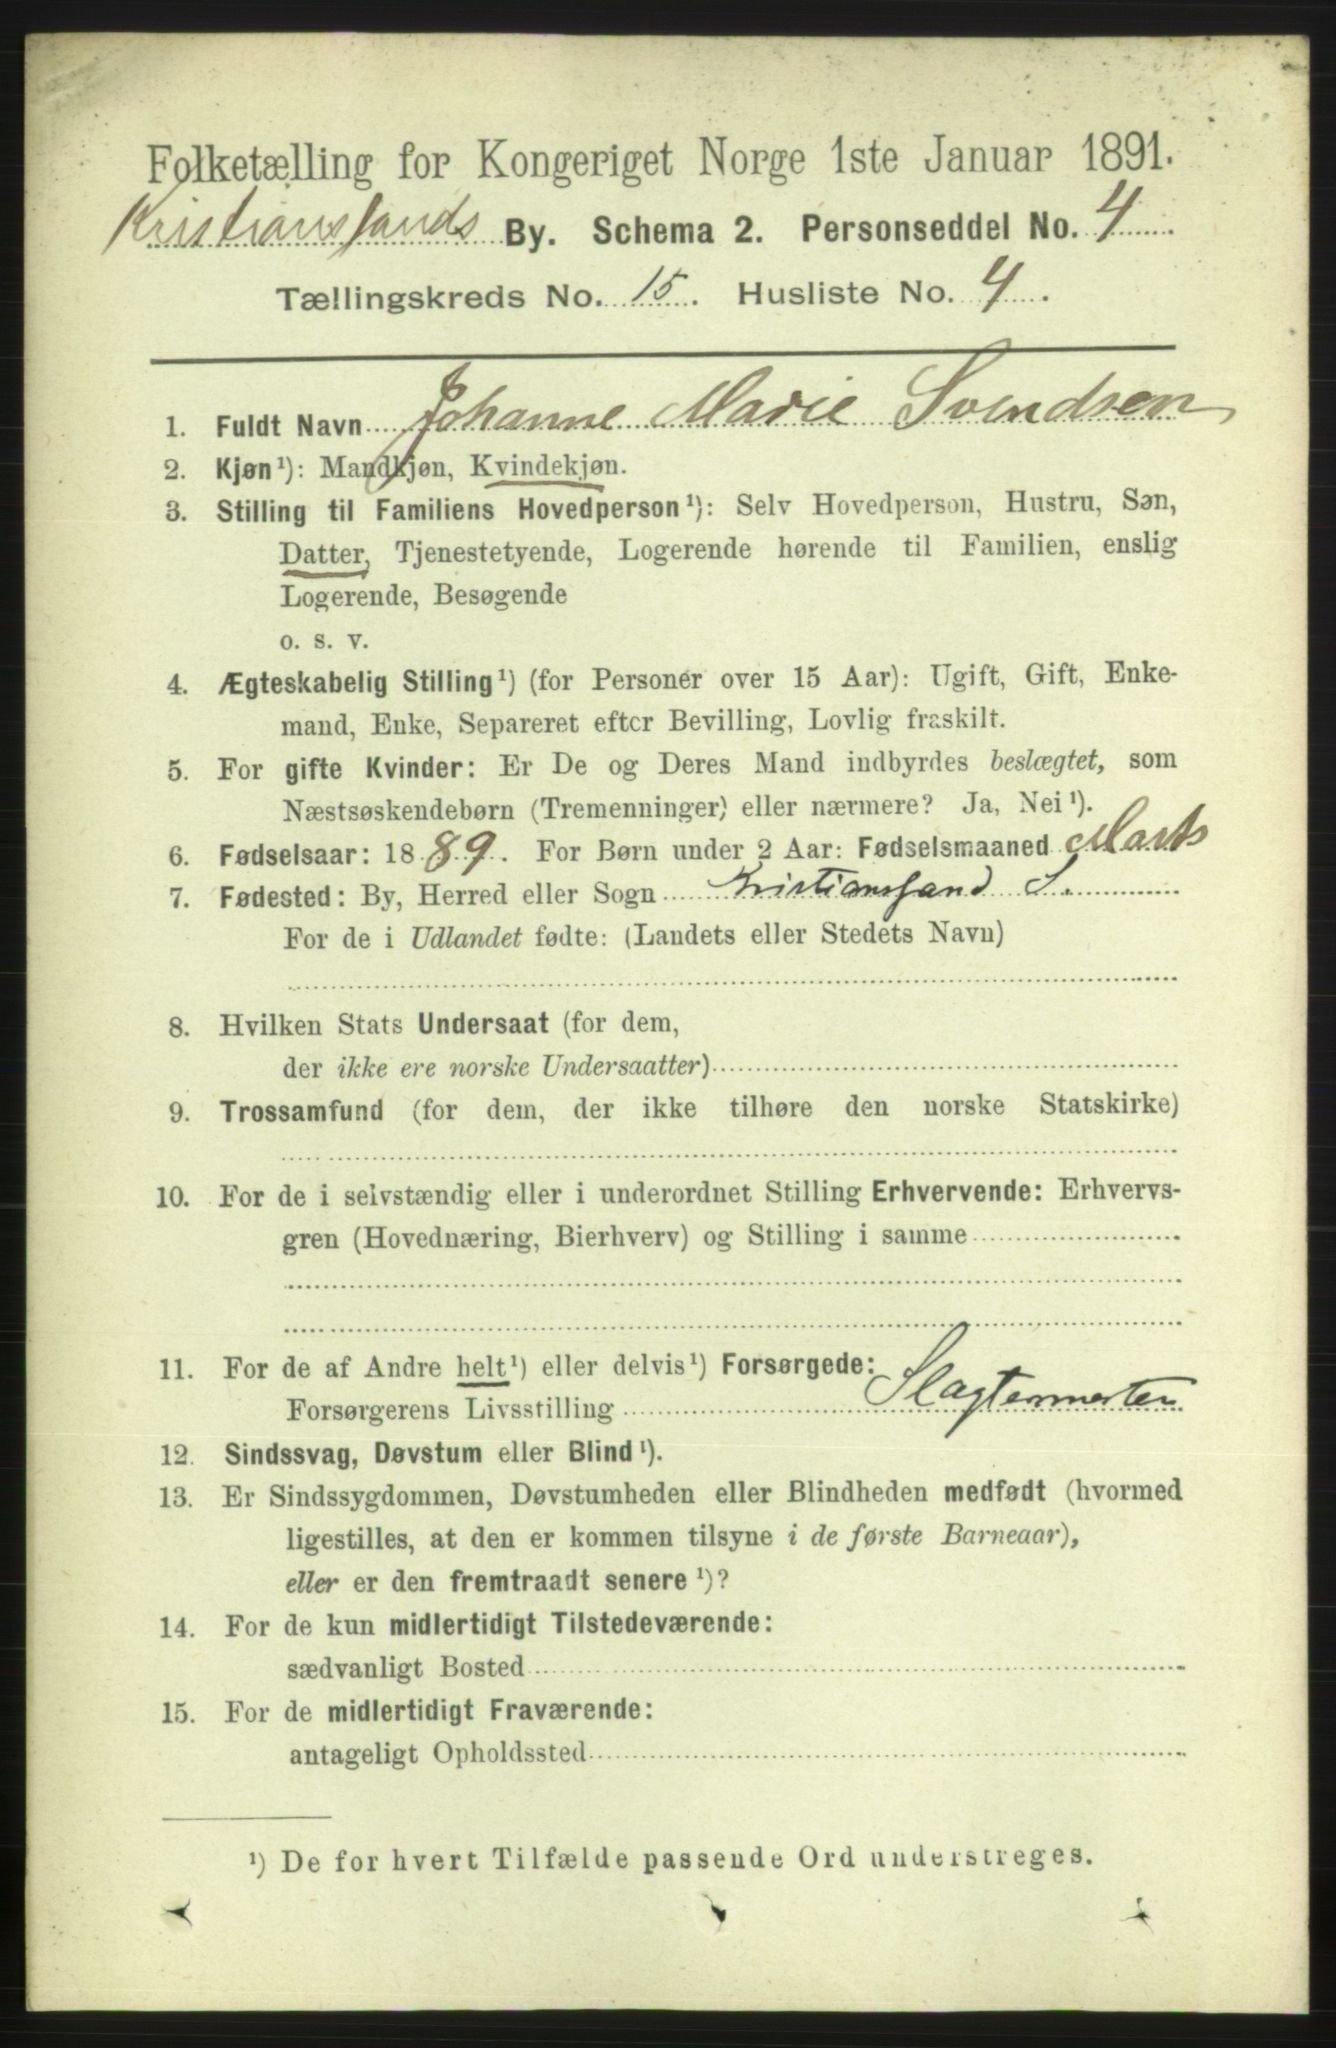 Folketælling for Kongeriget Norge 1ste Januar 1891.
Kristianssands By. Schema 2. Personseddel No. 4
Tællingskreds No. 15. Husliste No. 4.
1. Fuldt Navn Johanne Marie Svendsen
2. Kjøn¹): Mandkjøn, Kvindekjøn.
3. Stilling til Familiens Hovedperson¹): Selv Hovedperson, Hustru, Søn,
Datter, Tjenestetyende, Logerende hørende til Familien, enslig
Logerende, Besøgende
o. s. v.
4. Ægteskabelig Stilling¹) (for Personer over 15 Aar): Ugift, Gift, Enke-
mand, Enke, Separeret efter Bevilling, Lovlig fraskilt.
5. For gifte Kvinder: Er De og Deres Mand indbyrdes beslægtet, som
Næstsøskendebørn (Tremenninger) eller nærmere? Ja, Nei¹).
6. Fødselsaar: 1889. For Børn under 2 Aar: Fødselsmaaned Marts
7. Fødested: By, Herred eller Sogn Kristianssand S.
For de i Udlandet fødte: (Landets eller Stedets Navn)
8. Hvilken Stats Undersaat (for dem,
der ikke ere norske Undersaatter)
9. Trossamfund (for dem, der ikke tilhøre den norske Statskirke)
10. For de i selvstændig eller i underordnet Stilling Erhvervende: Erhvervs-
gren (Hovednæring, Bierhverv) og Stilling i samme
11. For de af Andre helt¹) eller delvis¹) Forsørgede:
Forsørgerens Livsstilling Slagtermester
12. Sindssvag, Døvstum eller Blind¹).
13. Er Sindssygdommen, Døvstumheden eller Blindheden medfødt (hvormed
ligestilles, at den er kommen tilsyne i de første Barneaar),
eller er den fremtraadt senere¹)?
14. For de kun midlertidigt Tilstedeværende:
sædvanligt Bosted
15. For de midlertidigt Fraværende:
antageligt Opholdssted
¹) De for hvert Tilfælde passende Ord understreges.